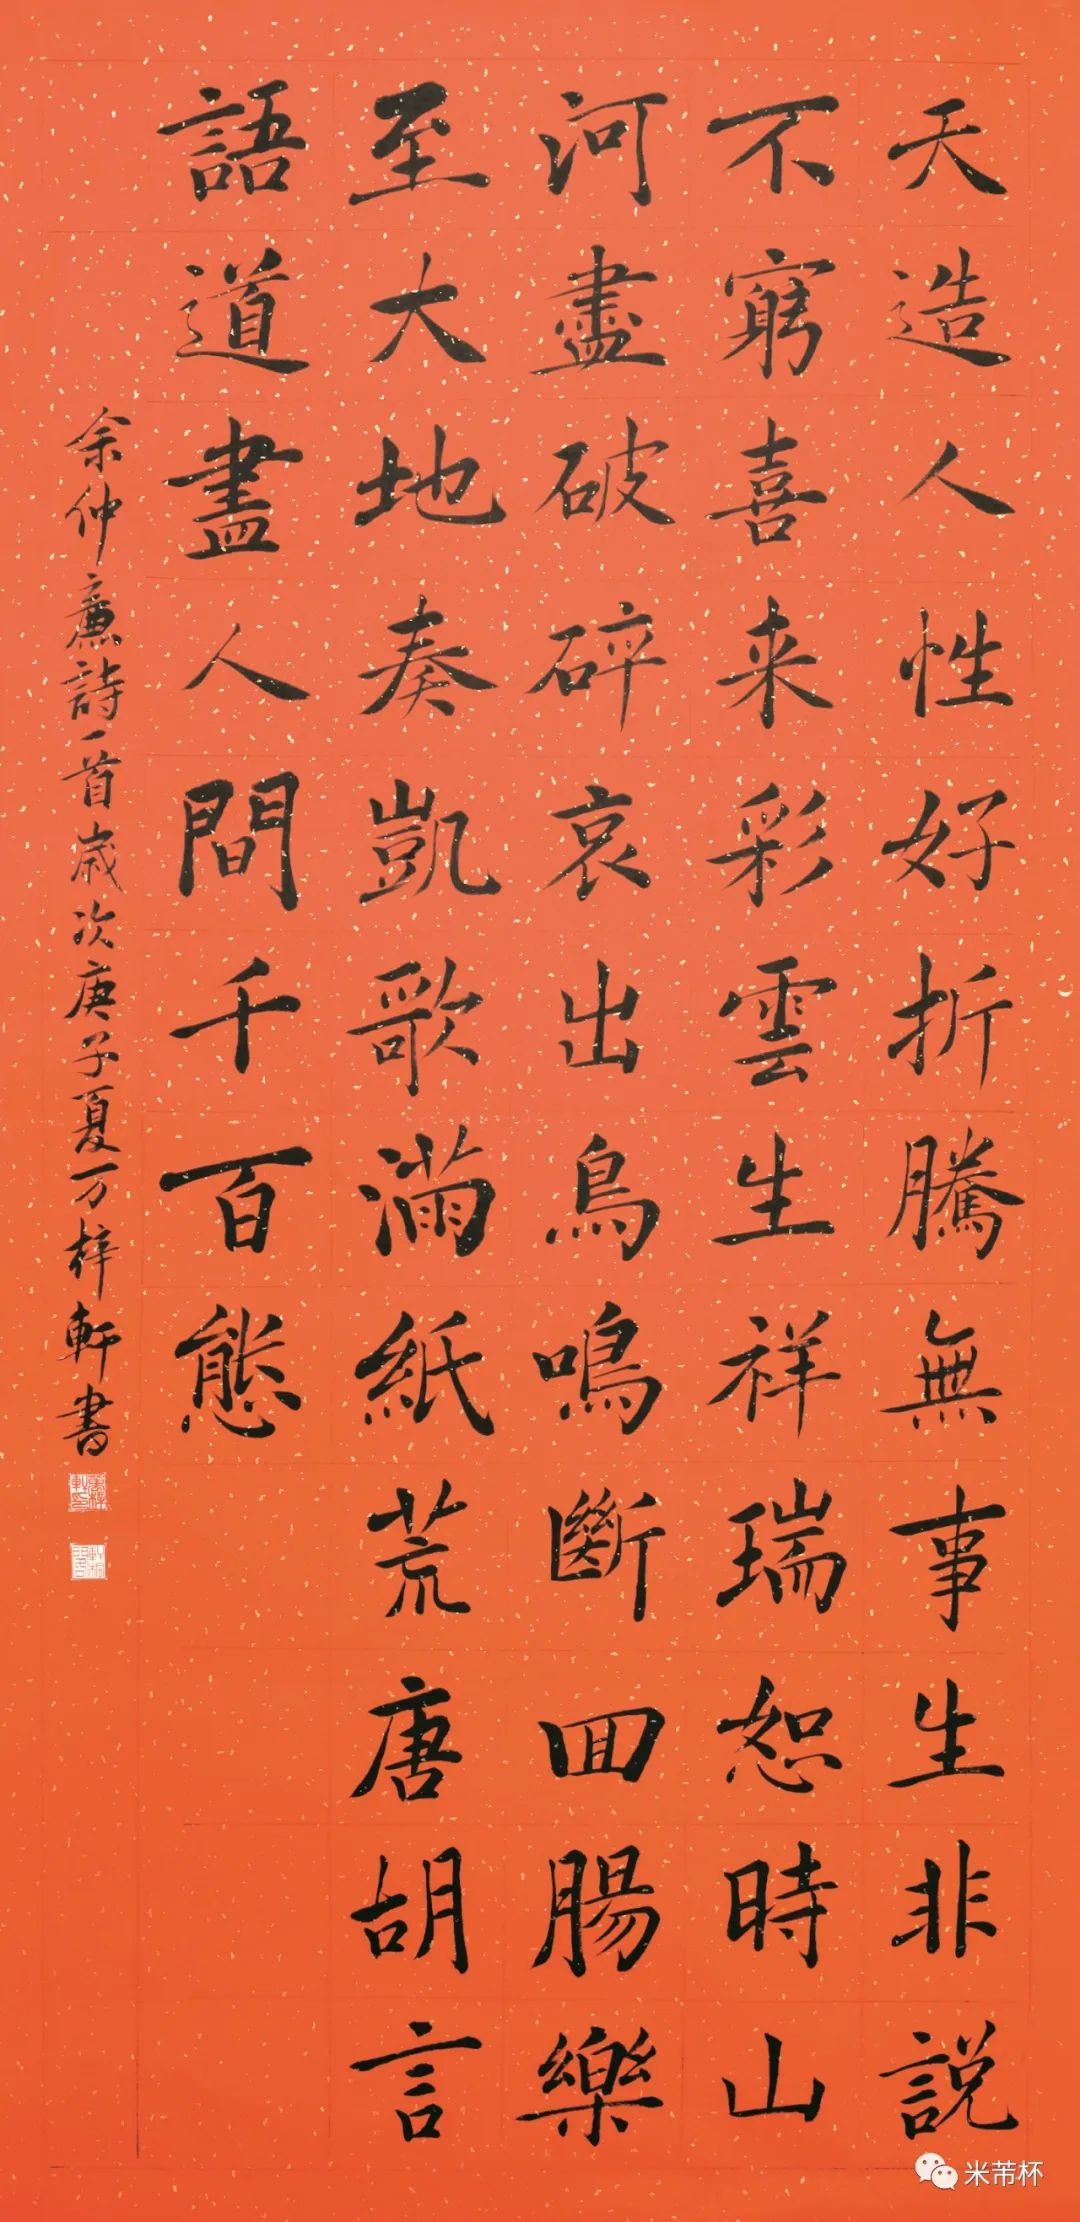 天造人性好折騰無事生非說
不窮喜来彩雲生祥瑞恕時山
河盡破碎哀出鳥鳴斷回腸樂
至大地奏凱歌滿紙荒唐胡言
語道盡人間千百態
余仲廉詩一首歲次庚子夏万梓軒書
米芾杯